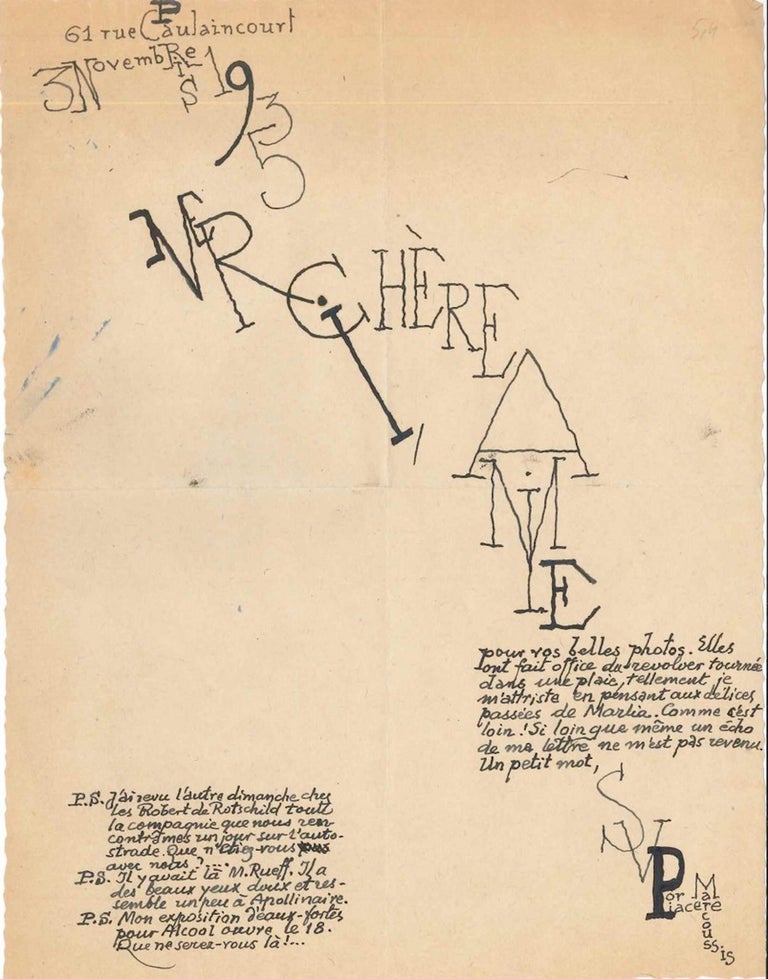 61 rue Caulaincourt
3 Novembre Paris 1935
MERCI, CHÈRE
AMIE
pour vos belles photos. Elles
ont fait office du revolver tournée
dans une plaie, tellement je
m'attriste en pensant aux délices
passées de Marlia. Comme c'est
loin! Si loin que même un écho
de ma lettre ne m'est pas revenu.
Un petit mot,
SVP
Por Piacere
Marcoussis
P.S. J'ai revu l'autre dimanche chez
les Robert de Rotschild toute
la compagnie que nous ren-
contrâmes un jour sur l'auto-
strade. Que n'étiez-vous pas
avec nous?...
P.S. Il y avait là M. Rueff. Il a
des beaux yeux doux et res-
semble un peu à Apollinaire.
P.S. Mon exposition d'eaux-fortes
pour Alcool ouvre le 18.
Que ne serez-vous là!...